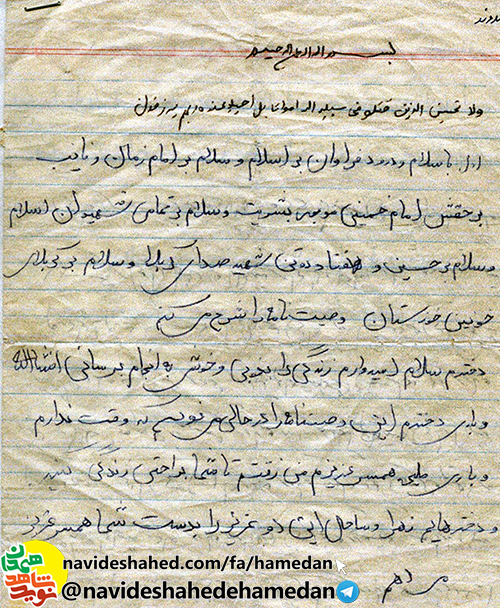 بسم الله الرحمن الرحیم
ولا تحسبن الذین قتلو فی سبیل الله امواتا بل احیاء عند ربهم یرزقون
اول با سلام و درود فراوان بر اسلام و سلام بر امام زمان و نایب
بر حقش امام خمینی بشریت و سلام بر تمامی شهیدان اسلام
و سلام بر حسین و هفتاد دو تن شهید صدای کربلا و سلام بر کربلای
خونین خوزستان وصیت نامه را شروع می کنم
دخترم سلام امیدوارم زندگی را بخوبی و خوشی به انجام برسانی انشاالله
و باری دخترم این وصیتنامه را در حالی می نویسم که وقت ندارم
و باری همسر عزیزم من رفتم تا شما براحتی زندگی کنید
و دخترهایم زهرا و این دو عزیز را بدست شما همسر عزیز
می دهم
navideshahed.com/fa/hamedan
@navideshahedehamedan
نوید شاهد همدان